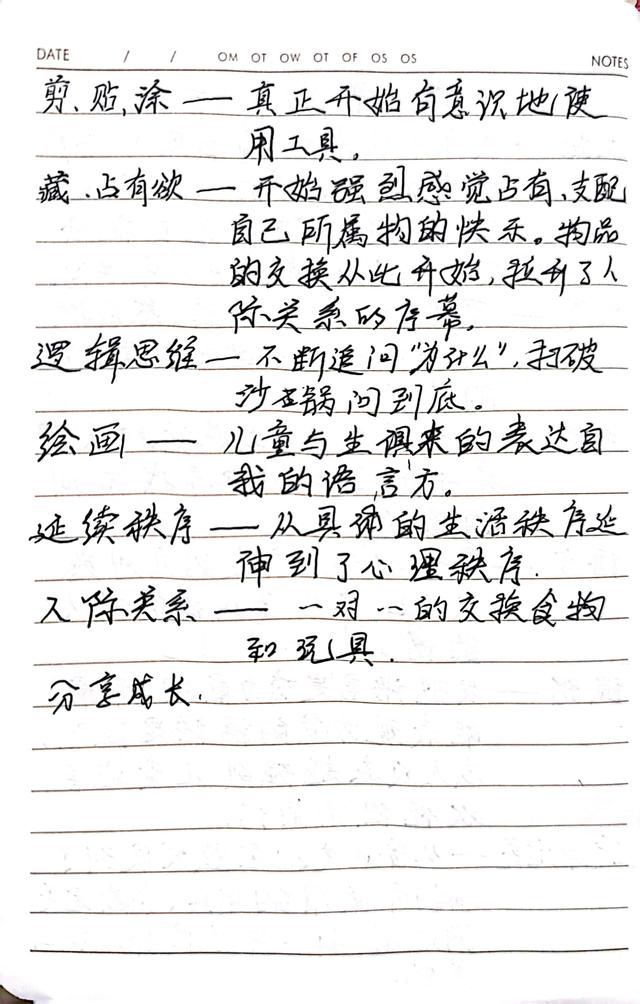 DATE / / OM OT OW OT OF OS OS NOTES
剪、贴、涂 — 真正开始有意识地使
用工具。
藏、占有欲 — 开始强烈感觉占有、支配
自己所属物的快乐。物品
的交换从此开始,拉开了人
际关系的序幕。
逻辑思维 — 不断追问“为什么”,打破
沙锅问到底。
绘画 — 儿童与生俱来的表达自
我的语言方。
延续秩序 — 从具体的生活秩序延
伸到了心理秩序.
人际关系 — 一对一的交换食物
和玩具.
分享成长.